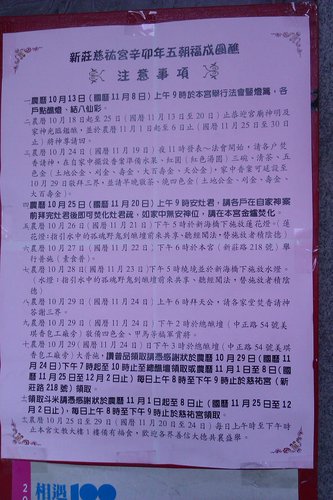 新莊慈祐宮辛卯年五朝福成圓醮
注意事項
一農曆10月13日（國曆11月8日）上午9時於本宮舉行法會豎燈篙，各
戶點醮燈、結八仙彩。
二農曆10月18日起至25日（國曆11月13日至20日）止恭迎宮廟神明及
家神光臨鑑醮，並於農曆11月1日起至6日止（國曆11月25日至30日
止）將神尊請回。
三農曆10月24日（國曆11月19日）夜11時發表～法會開始，請各戶焚
香請神，在自家中擺設香案準備水果、紅圓（紅色湯圓）三碗、清茶、五
色金（土地公金、刈金、壽金、大百壽金、天公金），家中香案可延設至
10月29日敬拜三界，並請早晚敬茶、燒四色金（土地公金、刈金、壽金、
大百壽金）。
四農曆10月25日（國曆11月20日）上午9時安灶君，請各戶在自家神案
前拜完灶君後即可焚化灶君疏，如家中無安神位，請在本宮金爐焚化。
五農曆10月26日（國曆11月21日）下午5時於新海橋下施放蓮花燈。（蓮
花燈：指引水中的孤魂野鬼到醮壇前來共享、聽經聞法、替施放者積陰德）
六農曆10月27日（國曆11月22日）下午6時於本宮（新莊路218號）舉
行普施（素食普）。
七農曆10月28日（國曆11月23日）下午5時統境並於新海橋下施放水燈。
（水燈：指引水中的孤魂野鬼到醮壇前來共享、聽經聞法、替施放者積陰
德）
八農曆10月29日（國曆11月24日）上午6時拜天公，請各家堂焚香請神
答謝三界。
九農曆10月29日（國曆11月24日）下午2時於總醮壇（中正路54號美
琪香皂工廠旁）敬備四色金、甲馬等犒軍賞將。
十農曆10月29日（國曆11月24日）日下午3時於總醮壇（中正路54號美琪
香皂工廠旁）大普施，讚普品領取請憑感謝狀於農曆10月29日（國曆11
月24日）下午7時起至10時止至總醮壇領取或農曆11月1日至8日（國
曆11月25日至12月2日止）每日上午8時至下午9時止於慈祐宮（新
莊路218號）領取。
±領取斗米請憑感謝狀於農曆11月1日起至8日止（國曆11月25日至12
月2日止），每日上午8時至下午9時止於慈祐宮領取。
農曆10月25日至29日（國曆11月20日至24日）每日上午時至下午時
止本宮文教大樓1樓備有福食，歡迎各界善信大德共襄盛舉。
相遇100